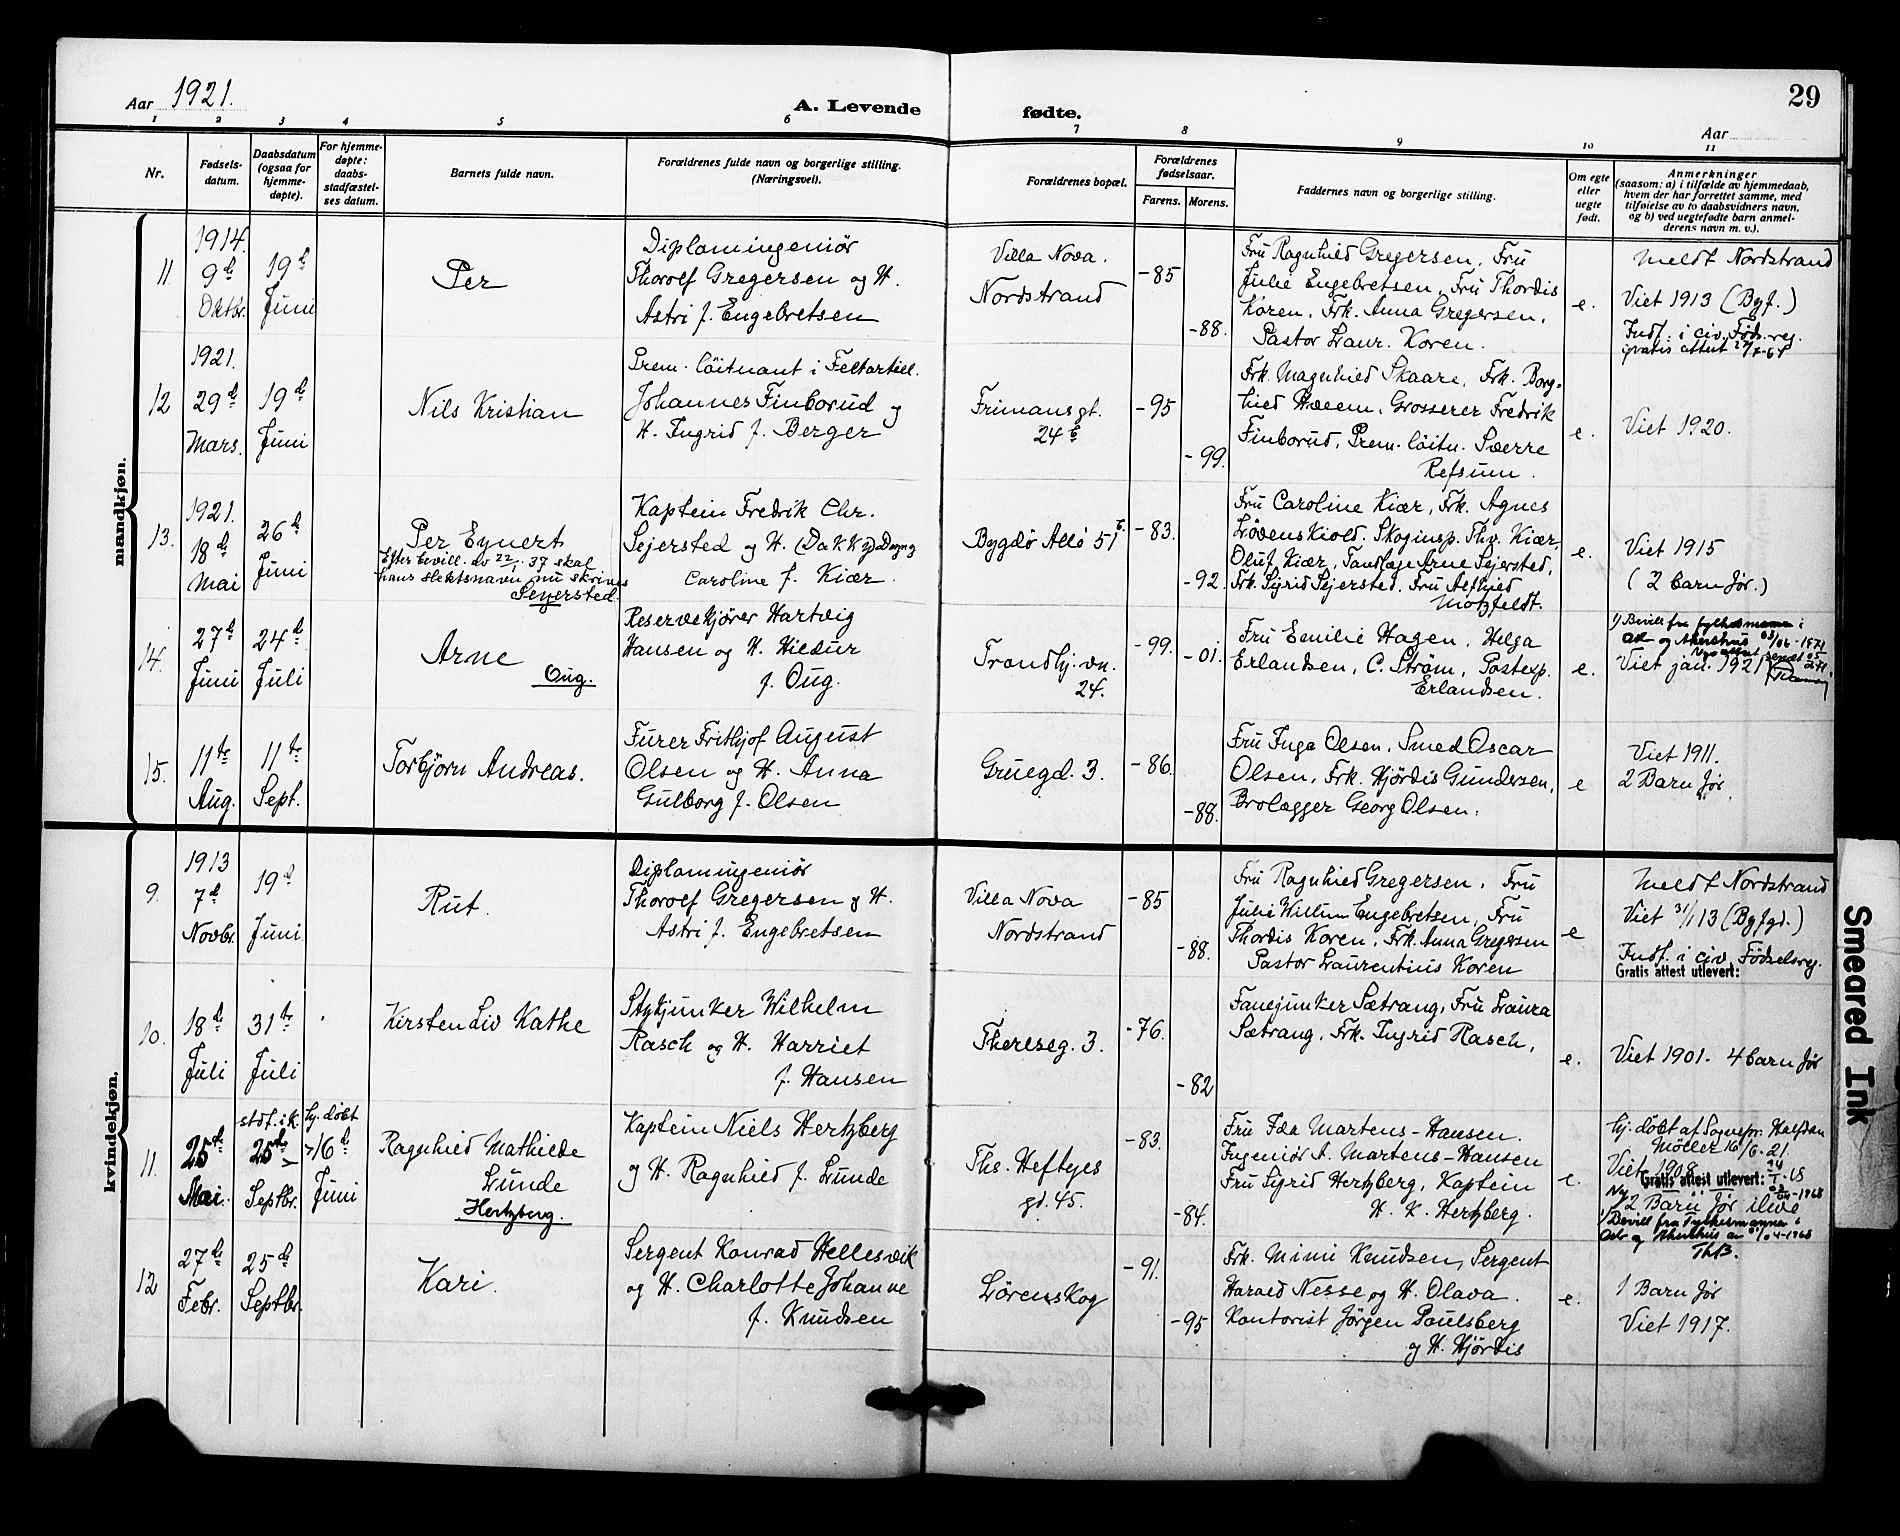 Aar 1921.
A. Levende fødte.
29
Aar
1 2 3 4 5 6 7 8 9 10 11
Nr.
Fødsels-
datum.
Daabsdatum
(ogsaa for
hjemme-
døpte).
For hjemme-
døpte:
daabs-
stadfæstel-
ses datum.
Barnets fulde navn.
Forældrenes fulde navn og borgerlige stilling.
(Næringsvei).
Forældrenes bopæl.
Forældrenes
fødselsaar.
Farens. Morens.
Faddernes navn og borgerlige stilling.
Om egte
eller
uegte
født.
Anmerkninger
(saasom: a) i tilfælde av hjemmedaab,
hvem der har forrettet samme, med
tilføielse av to daabsvidners navn,
og b) ved uegtefødte barn anmel-
derens navn m. v.).
mandkjøn.
11.
1914.
9d
Oktbr.
19d
Juni
Per
Diplomingeniør
Thorolf Gregersen og H.
Astri f. Engebretsen
Villa Nova.
Nordstrand
-85
-88.
Fru Ragnhild Gregersen, Fru
Julie Engebretsen, Fru Thordis
Koren, Frk. Anna Gregersen,
Pastor Laur. Koren.
e.
Meldt Nordstrand
Viet 1913 (Byf.)
Indf. i civ. Føds.reg.
gratis attest
12
1921.
29d
Mars.
19d
Juni
Nils Kristian
Prem. löitnant i Feltartill.
Johannes Finborud og
H. Ingrid f. Berger
Frimans gt.
24b
-95
-99.
Frk. Magnhild Skaare, Frk. Borg-
hild Hælem, Grosserer Fredrik
Finborud, Prem. löitn. Sverre
Refsum.
e.
Viet 1920.
13.
1921.
18d
Mai
26d
Juni
Per Eynert
Efter bevill. av 22/1 37 skal
hans slektsnavn nu skrives
Seyersted.
Kaptein Fredrik Chr.
Sejersted og H. Dagny
Caroline f. Kiær.
Bygdø Allè 51b.
-83.
-92.
Fru Caroline Kiær, Frk. Agnes
Løvenskiold, Skoginsp. Thv. Kiær,
Oluf Kiær, Tandlæge Arne Sejersted,
Frk. Sigrid Sejersted, Fru Alfhild
Motzfeldt.
e.
Viet 1915
(2 barn før.)
14.
27d
Juni
24d
Juli
Arne
Oug.
Reservekjører Hartvig
Hansen og H. Hildur
f. Oug.
Trondhj.vn.
24.
-99.
-01.
Fru Emilie Hagen, Helga
Erlandsen, C. Ström, Postexp.
Erlandsen.
e.
1) Bevill fra fylkesmannen i
Oslo og Akershus
Viet jan. 1921
15.
11te
Aug.
11te
Sept.
Torbjørn Andreas.
Furer Frithjof August
Olsen og H. Anna
Gulborg f. Olsen
Gruegd. 3.
-86.
-88.
Fru Inga Olsen, Smed Oscar
Olsen, Frk. Hjördis Gundersen,
Brolægger Georg Olsen.
e
Viet 1911.
2 Barn før.
kvindekjøn.
9.
1913
7d
Novbr.
19d
Juni
Rut.
Diplomingeniør
Thorolf Gregersen og H.
Astri f. Engebretsen
Villa Nova
Nordstrand
-85
-88.
Fru Ragnhild Gregersen, Fru
Julie Willum Engebretsen, Fru
Thordis Koren, Frk. Anna Gregersen
Pastor Laurentius Koren
e
Meldt Nordstrand
Viet 31/1 13 (Byfgd.)
Indf. i civ. Fødselsreg.
Gratis attest utlevert:
10.
18d
Juli
31te
Juli
Kirsten Liv Kathe
Stykjunker Wilhelm
Rasch og H. Harriet
f. Hansen
Thereseg. 3.
-76.
-82
Fanejunker Sætrang, Fru Laura
Sætrang, Frk. Ingrid Rasch,
e.
Viet 1901. 4 barn før
11.
25te
Mai.
stdf. i k.
25de
Septbr.
hj. döbt
16d
Juni
Ragnhild Mathilde
Lunde
Hertzberg.
Kaptein Niels Hertzberg
og H. Ragnhild f. Lunde
Ths. Heftyes
gt. 45.
-83.
-84.
Fru Ida Martens-Hansen.
Ingeniør A. Martens-Hansen
Fru Sigrid Hertzberg, Kaptein
H. K. Hertzberg.
e.
hj. döbt af Sognepr. Halfdan
Möller 16/6-21.
Viet 1908
Gratis attest utlevert:
2 Barn før ilive
1) Bevill fra Fylkesmannen i
Oslo og Akershus av
ThB.
12
27de
Febr.
25d
Septbr.
Kari.
Sergent Konrad Hellesvik
og H. Charlotte Johanne
f. Knudsen
Lörenskog
-91.
-95
Frk. Mimi Knudsen, Sergent
Harald Nesse og H. Olava.
Kontorist Jörgen Poulsberg
og H. Hjördis
e.
1 Barn før
Viet 1917.
Smeared Ink